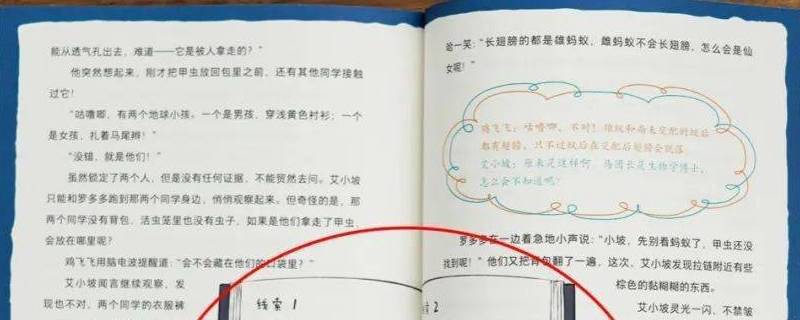 能从透气孔出去，难道——它是被人拿走的？”
他突然想起来，刚才把甲虫放回包里之前，还有其他同学接触
过它！
“咕噜唧，有两个地球小孩。一个是男孩，穿浅黄色衬衫；一个
是女孩，扎着马尾辫！”
“没错，就是他们！”
虽然锁定了两个人，但是没有任何证据，不能贸然去问。艾小坡
只能和罗多多跑到那两个同学身边，悄悄观察起来。但奇怪的是，那
两个同学没有背包，活虫笼里也没有虫子，如果是他们拿走了甲虫，
会放在哪里呢？
鸡飞飞用脑电波提醒道：“会不会藏在他们的口袋里？”
艾小坡闻言继续观察，发
现也不对，两个同学的衣服裤
线索 1
哈一笑：“长翅膀的都是雄蚂蚁，雌蚂蚁不会长翅膀，怎么会是仙
女呢！”
鸡飞飞：咕噜唧，不对！雄蚁和尚未交配的蚁后
都有翅膀，只不过蚁后在交配后翅膀会脱落。
艾小坡：原来是这样啊，马团长是生物学博士，
怎么会不知道呢？
罗多多在一边着急地小声说：“小坡，先别看蚂蚁了，甲虫还没
找到呢！”他们又把背包翻了一遍，这次，艾小坡发现拉链附近有些
棕色的黏糊糊的东西。
艾小坡灵光一闪，不禁皱
索 2